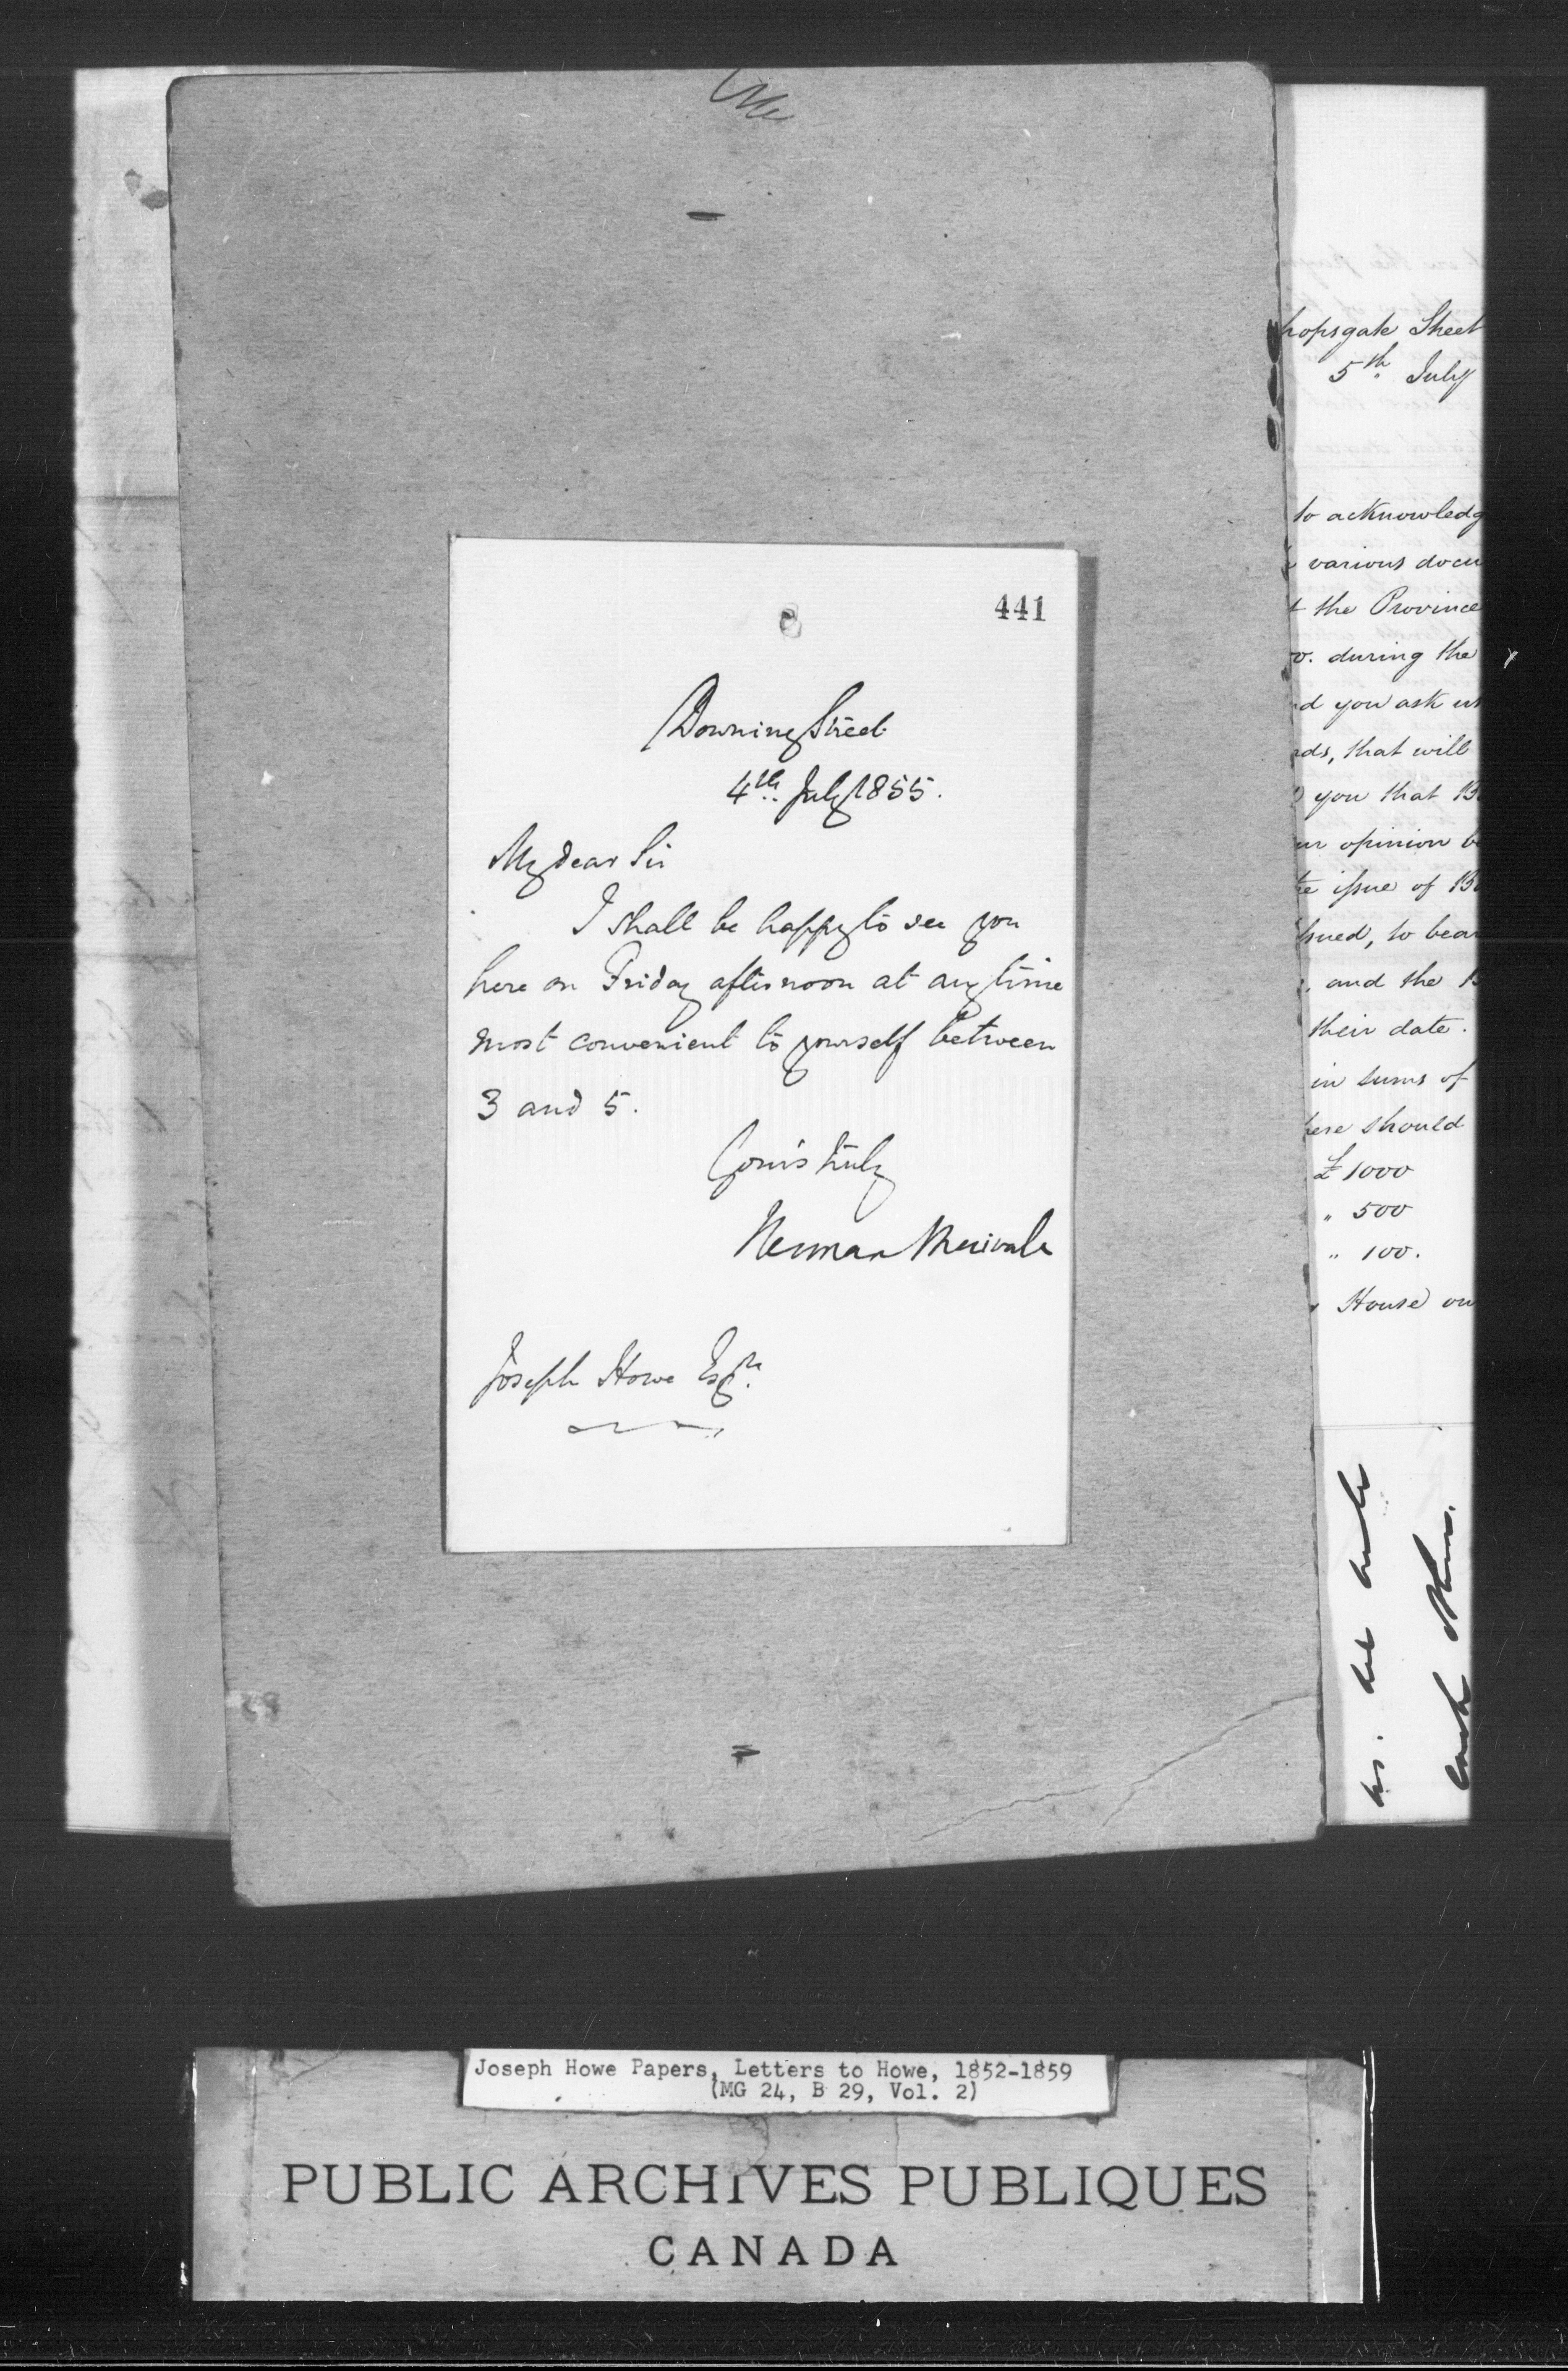 441
Downing Street
4th July 1855.
My dear Sir
I shall be happy to see you
here on Friday afternoon at any time
most convenient to yourself between
3 and 5.
Yours truly
Herman Merivale
Joseph Howe Esqre.
hopsgate Street
5th July
to acknowledg
various docu
the Province
during the
d you ask us
ds, that will
you that B
ur opinion b
e issue of B
ssued, to bear
and the B
their date.
in sums of
here should
£1000
" 500
" 100.
House on
Joseph Howe Papers, Letters to Howe, 1852-1859
(MG 24, B 29, Vol. 2)
PUBLIC ARCHIVES PUBLIQUES
CANADA